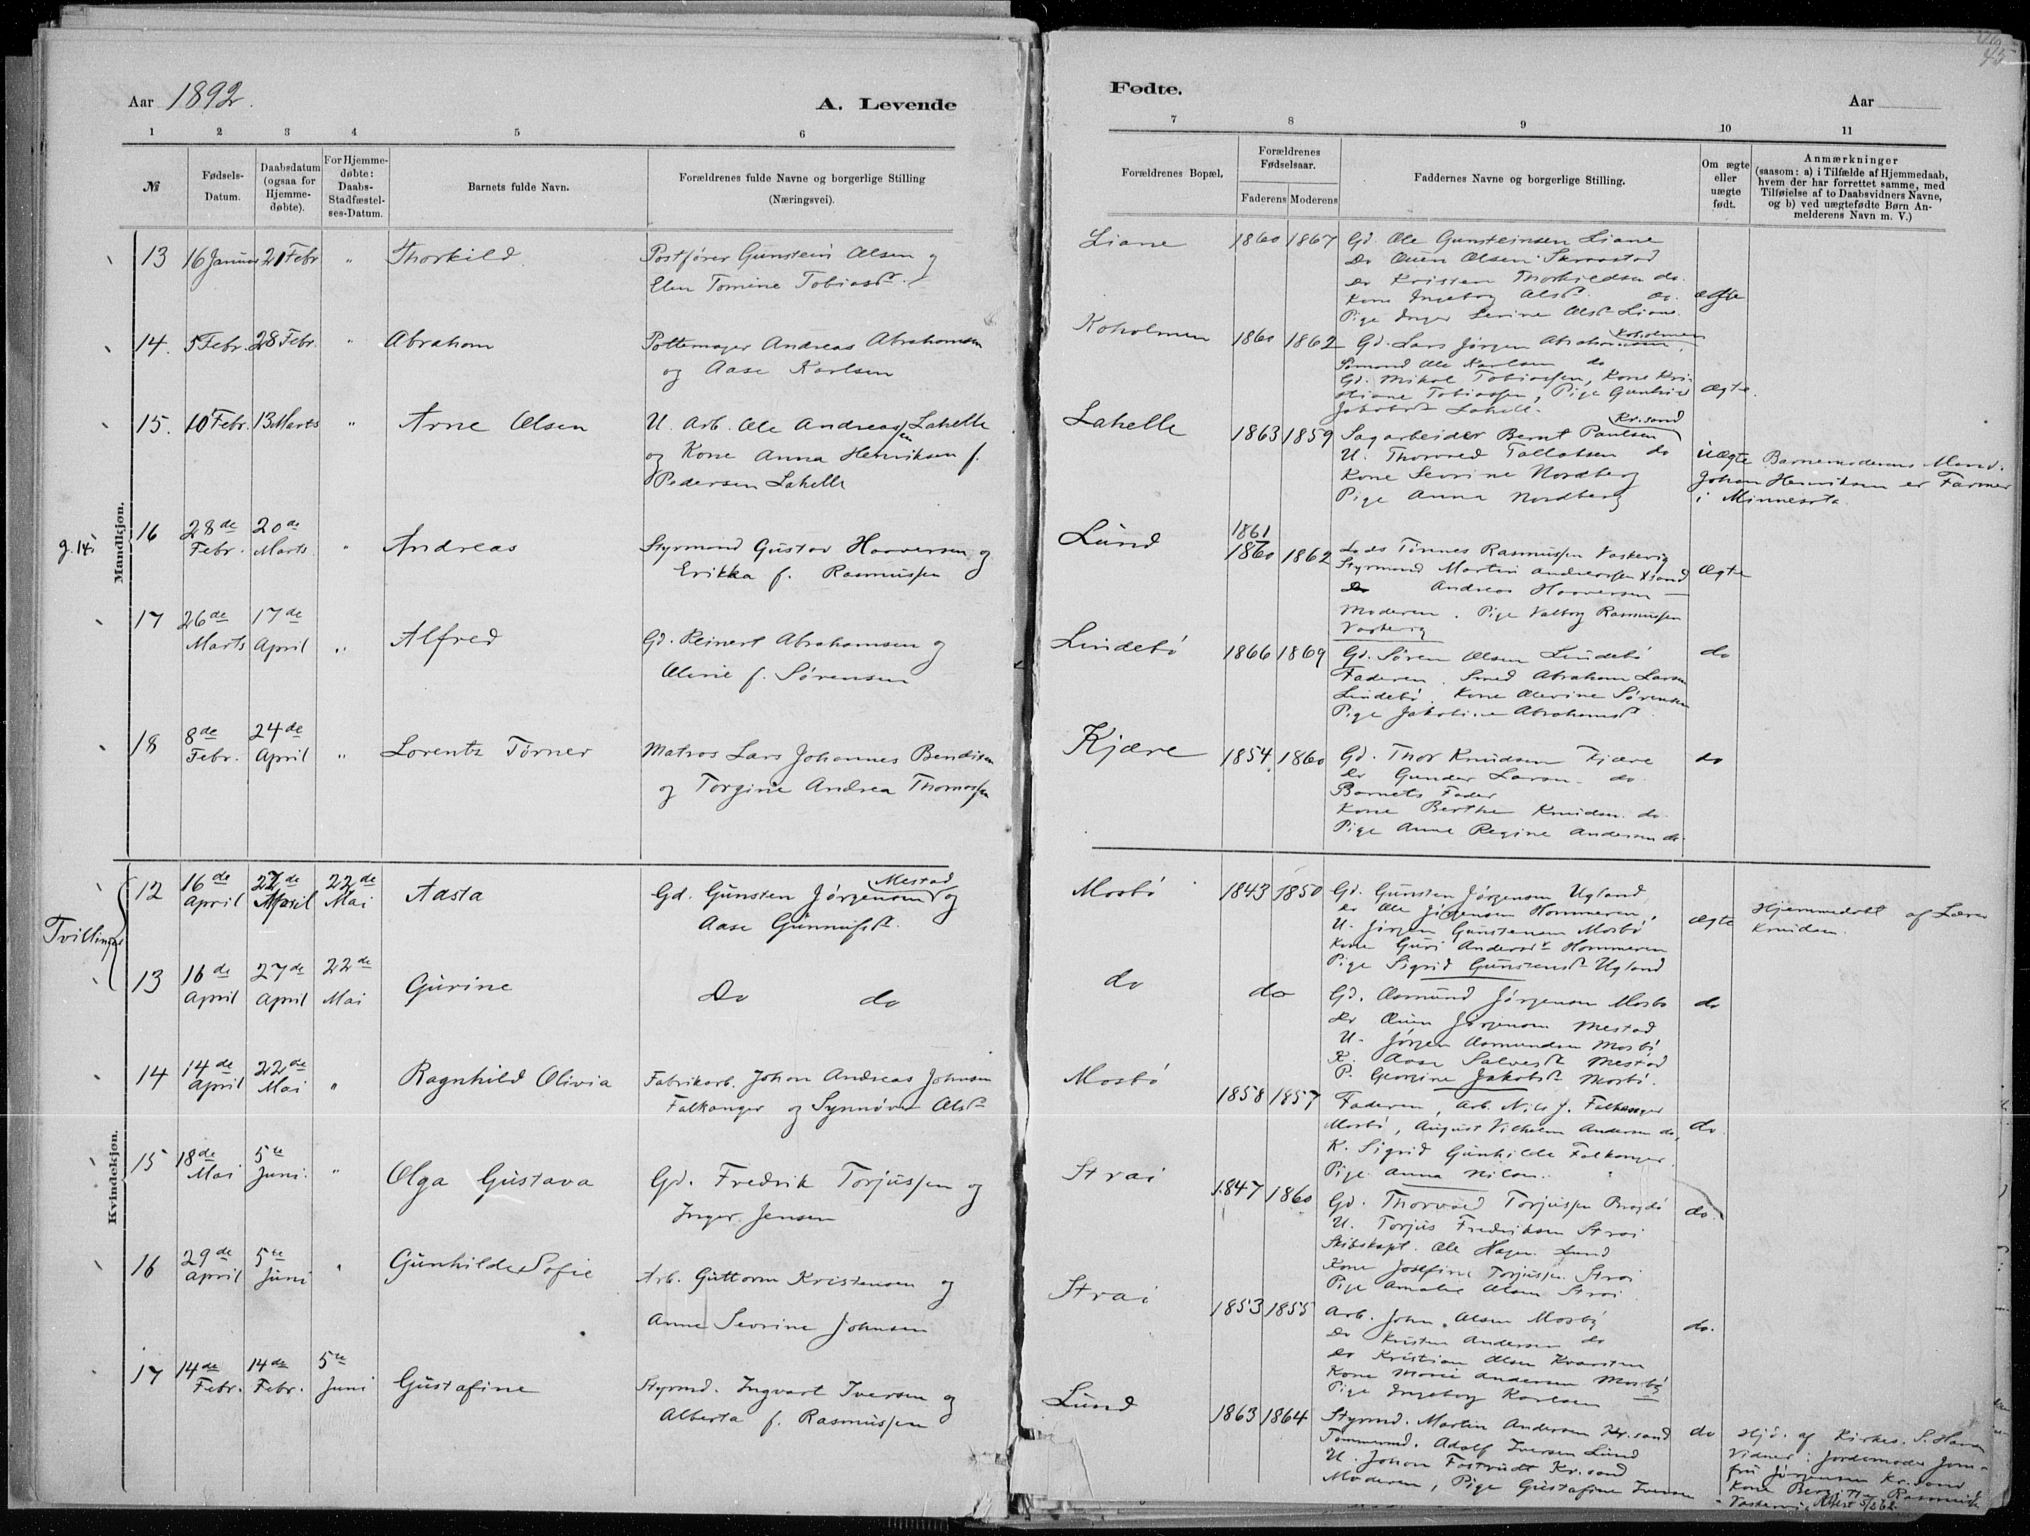 Aar 1892.
A. Levende
1 2 3 4 5 6
№
Fødsels-
Datum.
Daabsdatum
(ogsaa for
Hjemme-
døbte).
For Hjemme-
døbte:
Daabs-
Stadfæstel-
ses-Datum.
Barnets fulde Navn.
Forældrenes fulde Navne og borgerlige Stilling
(Næringsvei).
Mandkjøn.
13 16 Januar 21 Febr " Thorkild
Postfører Gunstein Olsen og
Elen Tomine Tobiasd.
14. 5 Febr. 28 Febr. " Abraham
Pottemager Andreas Abrahamsen
og Aase Karlsen
15. 10 Febr. 13 Marts " Arne Olsen
U. Arb. Ole Andreassen Lahelle
og Kone Anna Henriksen f.
Pedersen Lahelle
g. 145
16 28de Febr. 20de Marts " Andreas
Styrmand Gustav Haaversen og
Erikka f. Rasmussen
17 26de Marts 17de April " Alfred
Gd. Reinert Abrahamsen og
Oline f. Sørensen
18 8de Febr. 24de April " Lorentz Tørner
Matros Lars Johannes Bendixen
og Torgine Andrea Thomassen
Kvindekjøn.
Tvillinger
12 16de April 27de April 22de Mai Aasta
Gd. Gunsten Jørgensen Mestad og
Aase Gunnufsd.
13 16de April 27de April 22de Mai Gurine
Do do
14 14de April 22de Mai " Ragnhild Olivia
Fabrikarb. Johan Andreas Johnsen
Falkanger og Synnøve Olsd
15 18de Mai 5te Juni. " Olga Gustava
Gd. Fredrik Torjussen og
Inger Jensen
16 29de April 5te Juni " Gunhilde Sofie
Arb. Guttorm Kristensen og
Anne Sevrine Johnsen
17 14de Febr. 14de Febr. 5te Juni Gustafine
Styrmd. Ingvart Iversen og
Alberta f. Rasmussen
45
Fødte.
Aar
7 8 9 10 11
Forældrenes Bopæl.
Forældrenes
Fødselsaar.
Faderens Moderens
Faddernes Navne og borgerlige Stilling.
Om ægte
eller
uægte
født.
Anmærkninger
(saasom: a) i Tilfælde af Hjemmedaab,
hvem der har forrettet samme, med
Tilføielse af to Daabsvidners Navne,
og b) ved uægtefødte Børn An-
melderens Navn m. V.)
Liane 1860 1867 Gd. Ole Gunsteinsen Liane
Do Ouen Olsen Skraastad
Do Kristen Thorkildsen do.
Kone Ingeborg Olsd. do. ægte
Pige Inger Serine Olsd Liane.
Koholmen 1860 1862 Gd. Lars Jørgen Abrahamsen Koholmen,
Sømand Ole Karlsen do
Gd. Mikal Tobiassen, Kone Kri-
stiane Tobiassen, Pige Gunhild ægte.
Jakobsd Lahelle.
Lahelle 1863 1859 Sagarbeider Bernt Paulsen Kr.sand
U. Thorvald Tallaksen do
Kone Sevrine Nordberg
Pige Anna Nordberg
uægte Barnemoderens Mand
Johan Henriksen er Farmer
i Minnesota
Lund 1861
1860 1862 Lods Tønnes Rasmussen Vaskerig
Styrmand Martin Andreassen Xsand ægte
Do Andreas Haaversen —
Moderen. Pige Valborg Rasmussen
Vaskerig
Lindebø 1866 1869 Gd. Søren Olsen Lindebø do
Faderen. Smed Abraham Larsen
Lindebø. Kone Olevine Sørensen
Pige Jakobine Abrahamsd.
Kjære 1854 1860 Gd. Thor Knudsen Kjære do
Do Gunder Larsen do.
Barnets Fader
Kone Berthe Knudsen do.
Pige Anne Regine Andersen do.
Mosbø 1843 1850 Gd. Gunsten Jørgensen Ugland,
Do Ole Jørgensen Hommeren,
U. Jørgen Gunstensen Mosbø
Kone Guri Andersd. Hommeren
Pige Sigrid Gunstensd. Ugland
ægte Hjemmedøbt af Lærer
Knudsen.
do do Gd. Aasmund Jørgensen Mosbø do
Do Ouen Jørgensen Mestad
U. Jørgen Aasmundsen Mosbø
K. Aase Salvesd. Mestad
P. Georgine Jakobsd. Mosbø.
Mosbø 1858 1857 Faderen, Arb. Nils J. Falkanger
Mosbø, August Vilhelm Andersen do, do
K. Sigrid Gunhilde Falkanger.
Pige Anna Nilsen.
Strai 1847 1860 Gd. Thorvald Torjussen
U. Torjus Fredriksen Strai do.
Skibskapt. Ole Hagen Lund
Kone Josefine Torjussen Strai
Pige Amalie Olsen Strai
Strai 1853 1855 Arb. John Olsen Mosby
Do Kristen Andersen do do.
Do Kristian Olsen Kvarsten
Kone Marie Andersen Mosby
Pige Ingeborg Karlsen —
Lund 1863 1864 Styrmd. Martin Andersen Kr.sand do
Tømmermd. Adolf Iversen Lund
U. Johan Kr.sand
Moderen, Pige Gustafine Iversen
Hjd. af Kirkes. S.
Vidner: Jordemoder Jom-
fru Jørgensen Kr.sand
Kone Rasmussen